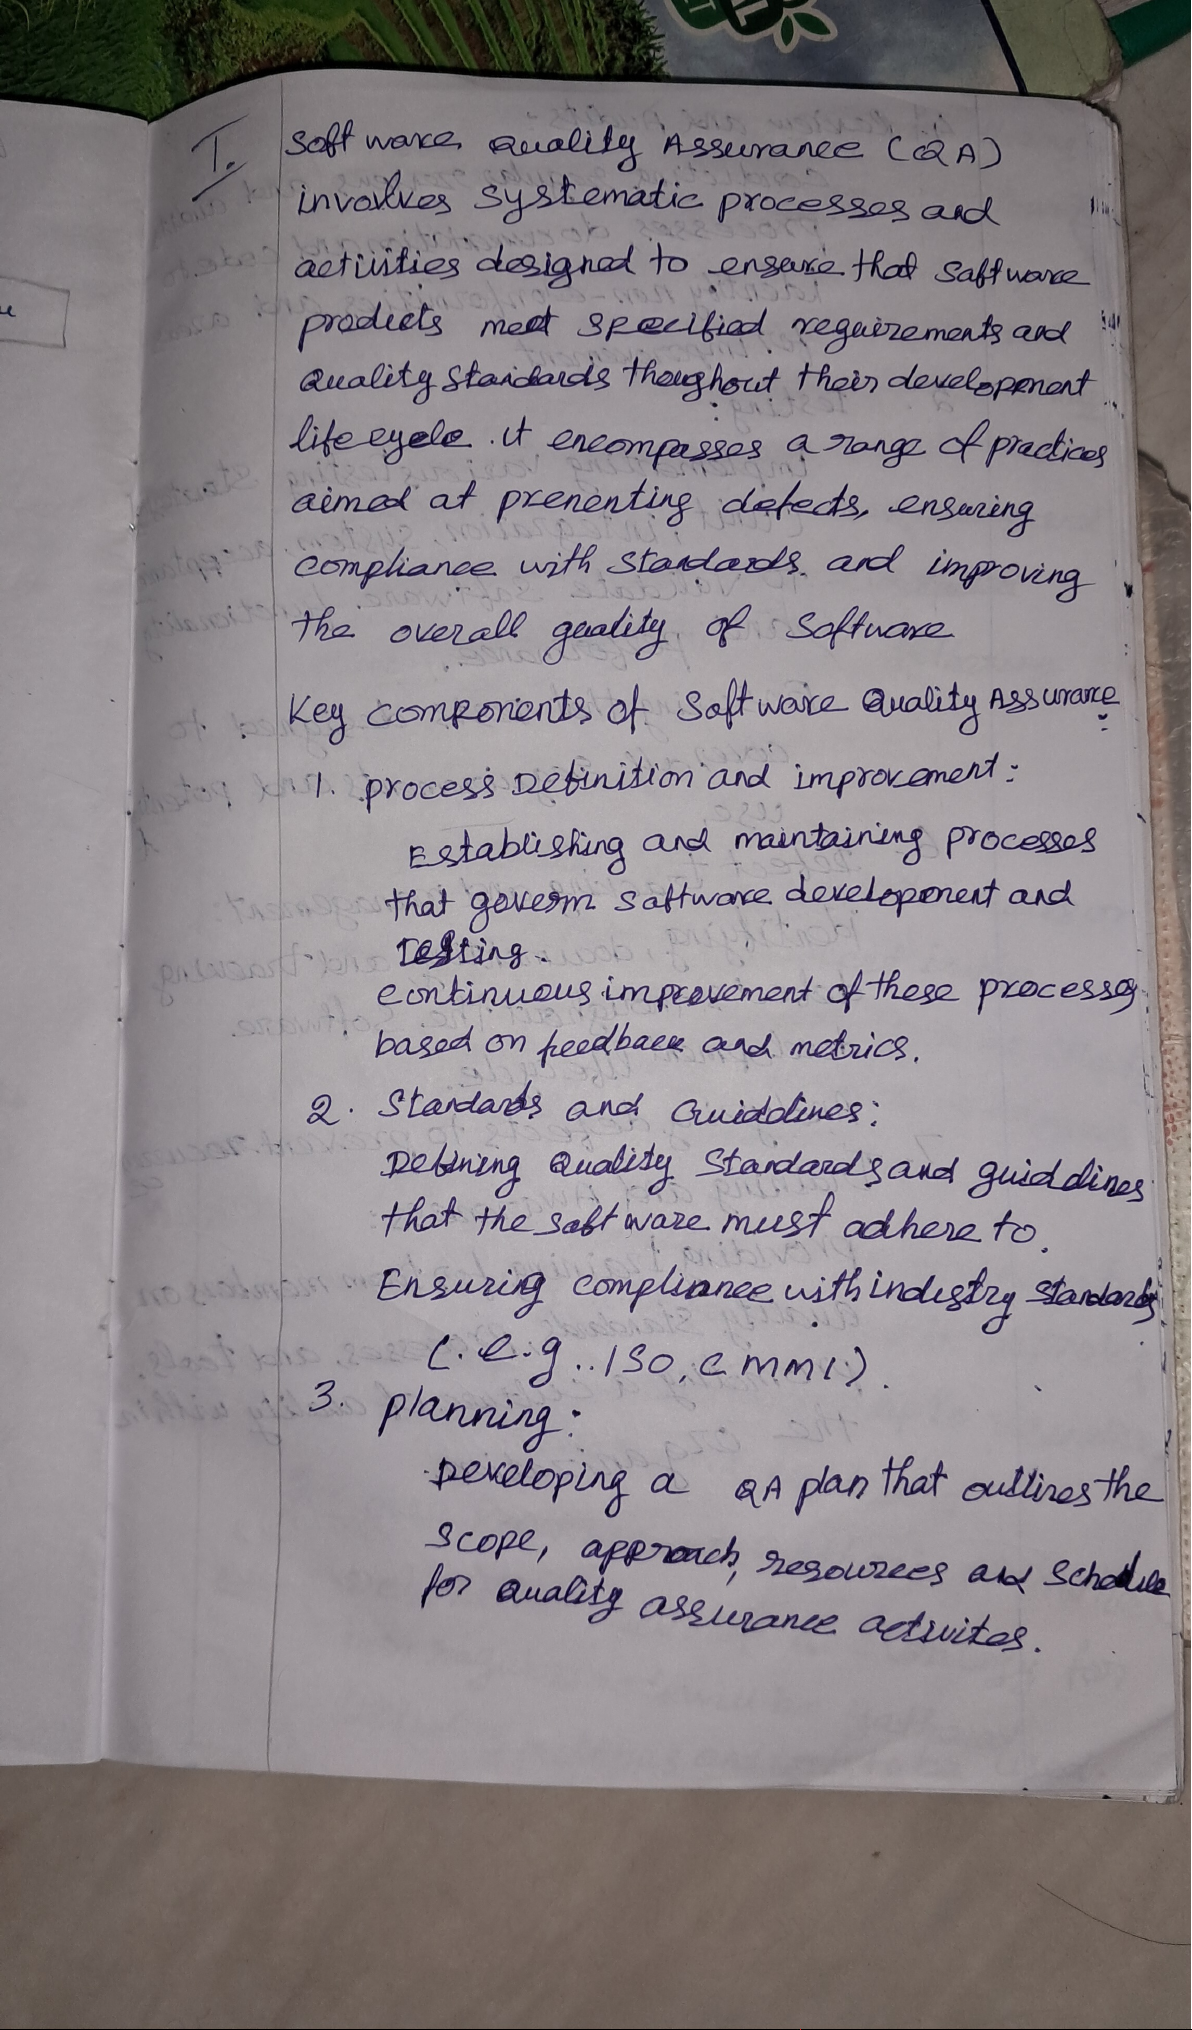 I. Software Quality Assurance (QA)
involves systematic processes and
activities designed to ensure that software
products meet specified requirements and
Quality Standards thoughout their development
life cycle. it encompasses a range of practices
aimed at prenenting defects, ensuring
compliance with standards. and improving
the overall quality of Software
Key components of Software Quality Assurance
1. process Definition and improvement:
Establishing and maintaining processes
that govern software development and
Testing.
continuous improvement of these processes
based on feedback and metrics.
2. Standards and Guiddlines:
Defining Quality Standards and guiddlines
that the software must adhere to.
Ensuring compliance with industry standards
(.e.g..ISO, CMMI).
3. planning:
Developing a QA plan that outlines the
scope, approach, resources and schedule
for quality assurance activites.